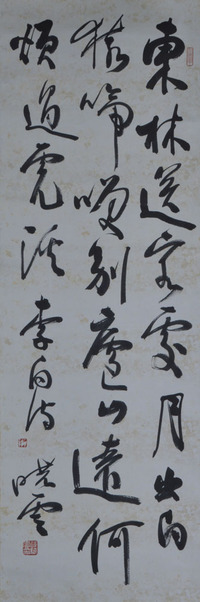 東林送客處月出白
猿啼笑別廬山遠何
煩過虎溪李白诗
晓雲